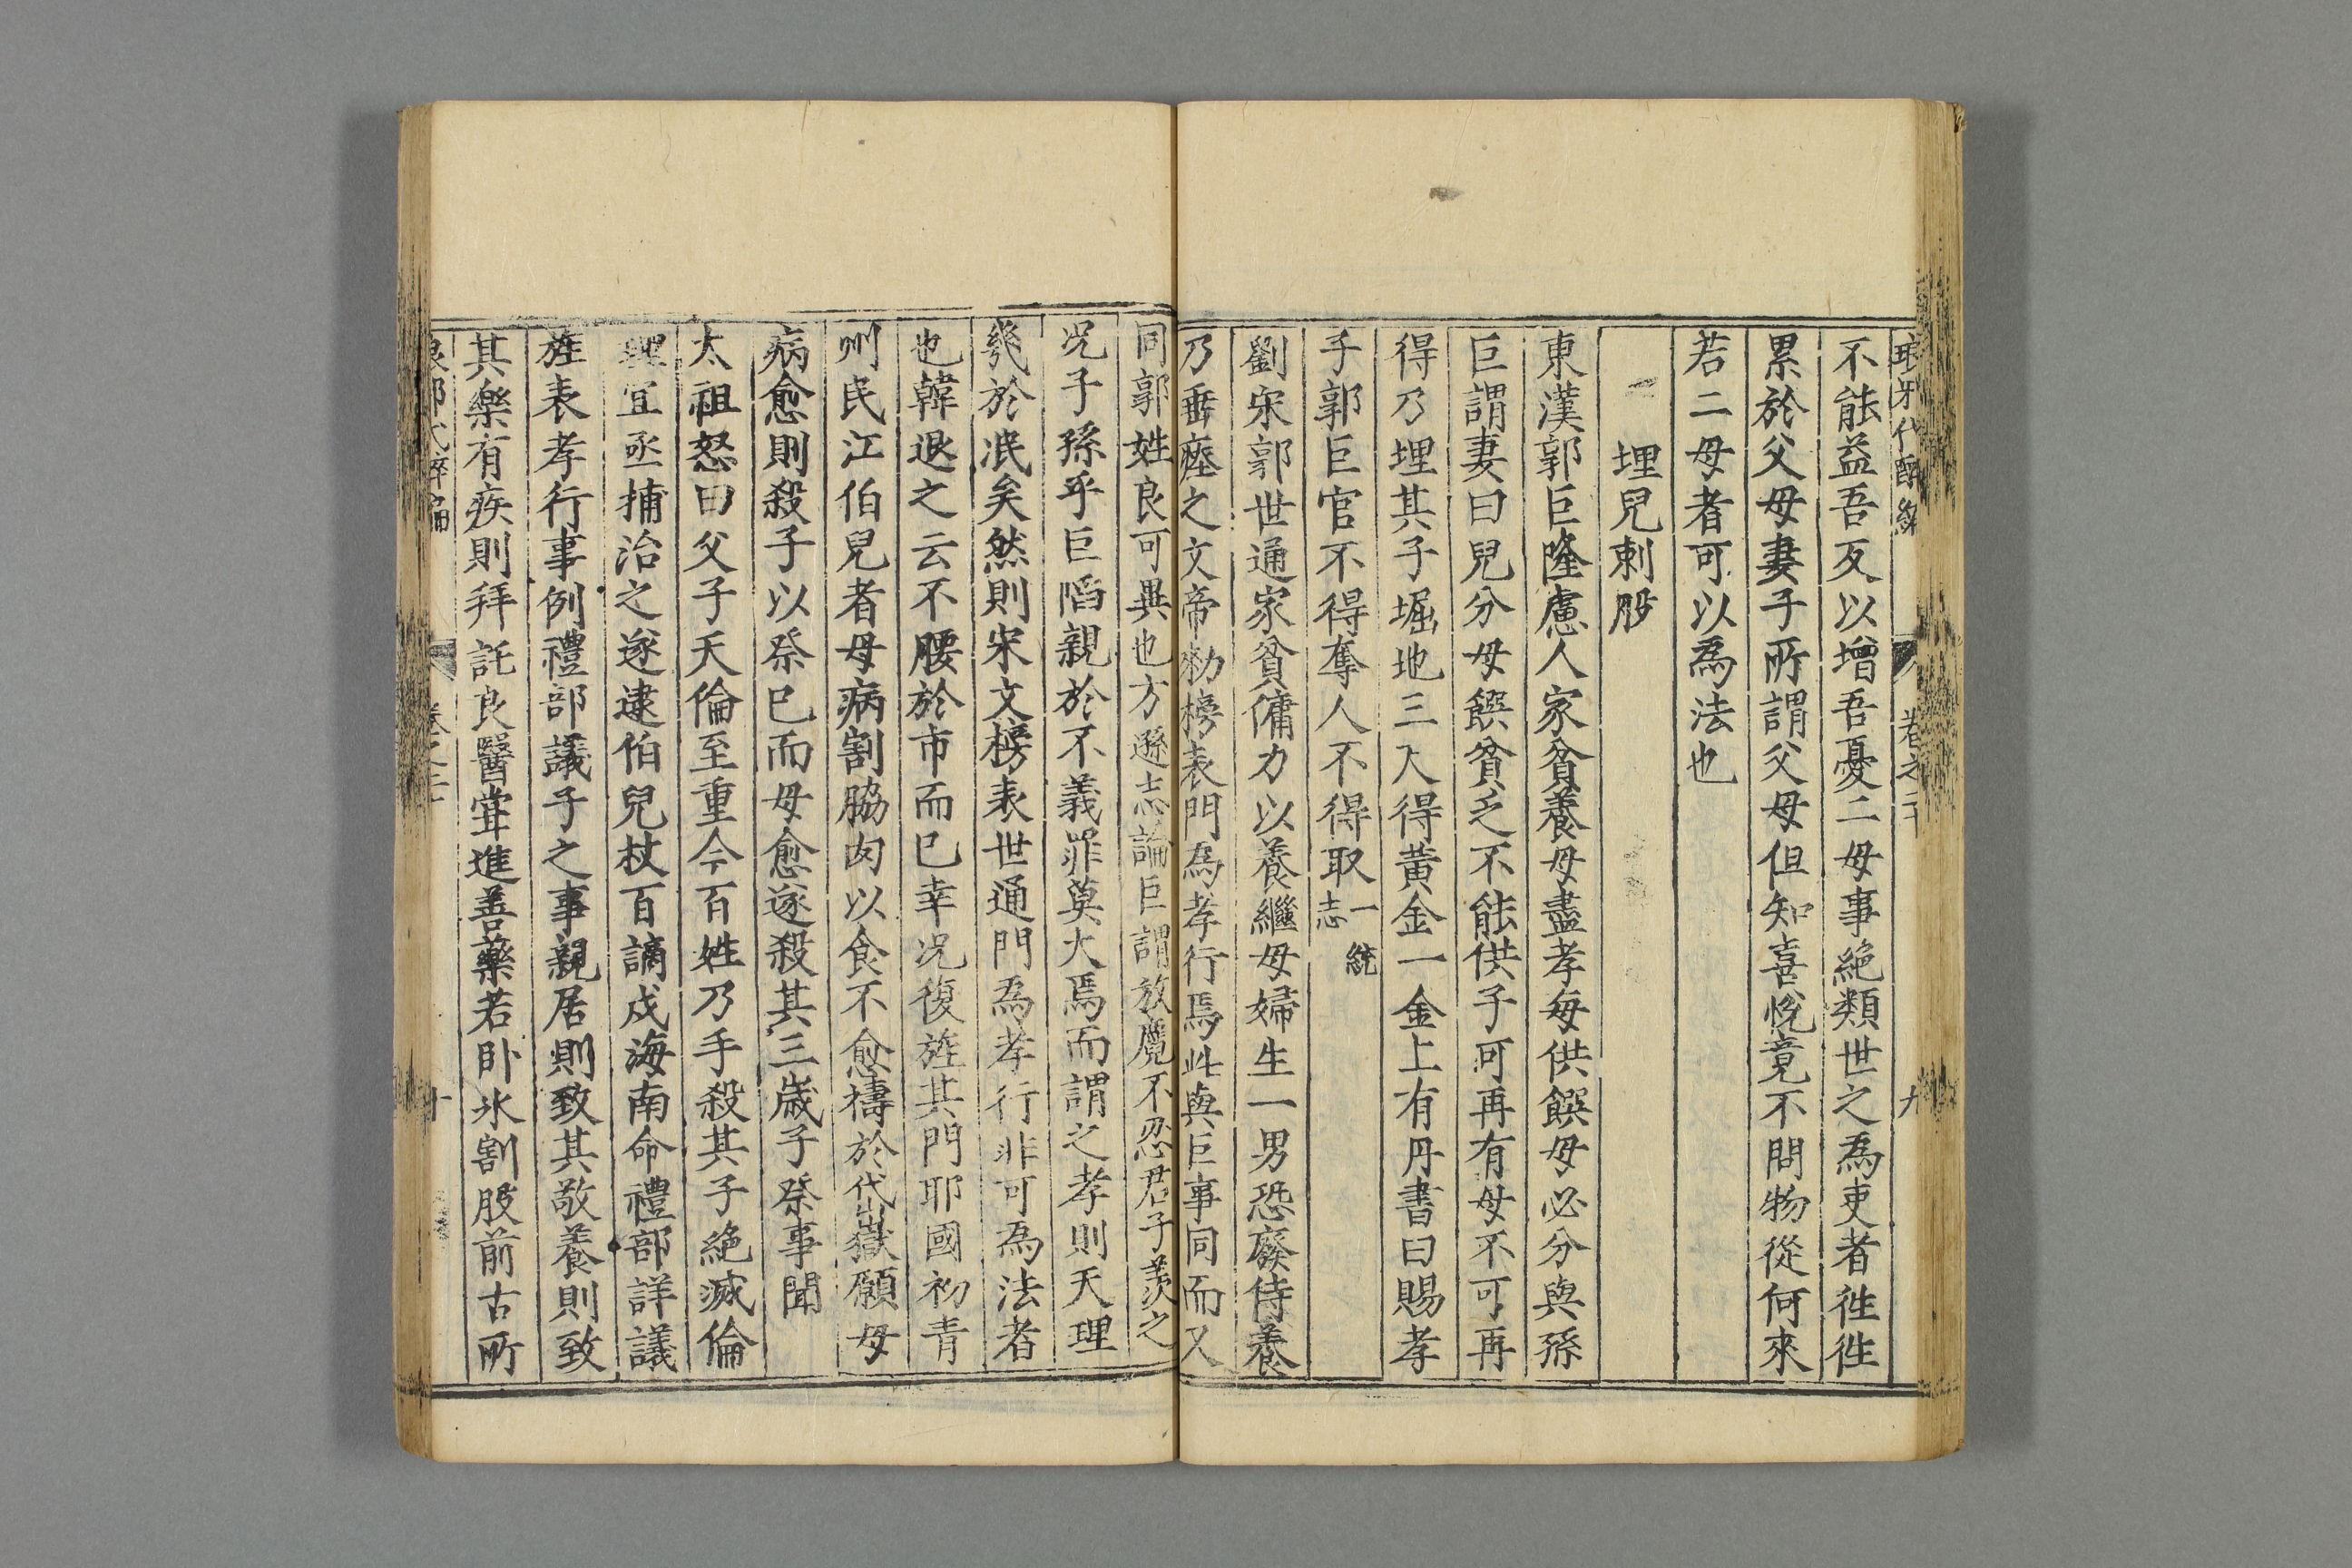 不能益吾反以增吾憂二母事絕類世之為吏者徃徃
累於父母妻子所謂父母但知喜悅竟不問物從何來
若二母者可以為法也
埋兒刺股
東漢郭巨隆慮人家貧養母盡孝每供饌母必分與孫
巨謂妻曰兒分母饌貧乏不能供子可再有母不可再
得乃埋其子堀地三尺得黃金一金上有丹書曰賜孝
子郭巨官不得奪人不得取一統志
劉宋郭世通家貧傭力以養繼母婦生一男恐廢侍養
乃垂瘞之文帝勑榜表門為孝行焉此與巨事同而又
同郭姓良可異也方遜志論巨謂放麑不忍君子羨之
况子孫乎巨陷親於不義罪莫大焉而謂之孝則天理
幾於泯矣然則宋文榜表世通門為孝行非可為法者
也韓退之云不腰於市而已幸况復旌其門耶國初青
州民江伯兒者母病割脇肉以食不愈禱於岱嶽願母
病愈則殺子以祭已而母愈遂殺其三歲子祭事聞
太祖怒曰父子天倫至重今百姓乃手殺其子絕滅倫
理宜亟捕治之遂逮伯兒杖百謫戍海南命禮部詳議
旌表孝行事例禮部議子之事親居則致其敬養則致
其樂有疾則拜託良醫甞進善藥若卧氷割股前古所